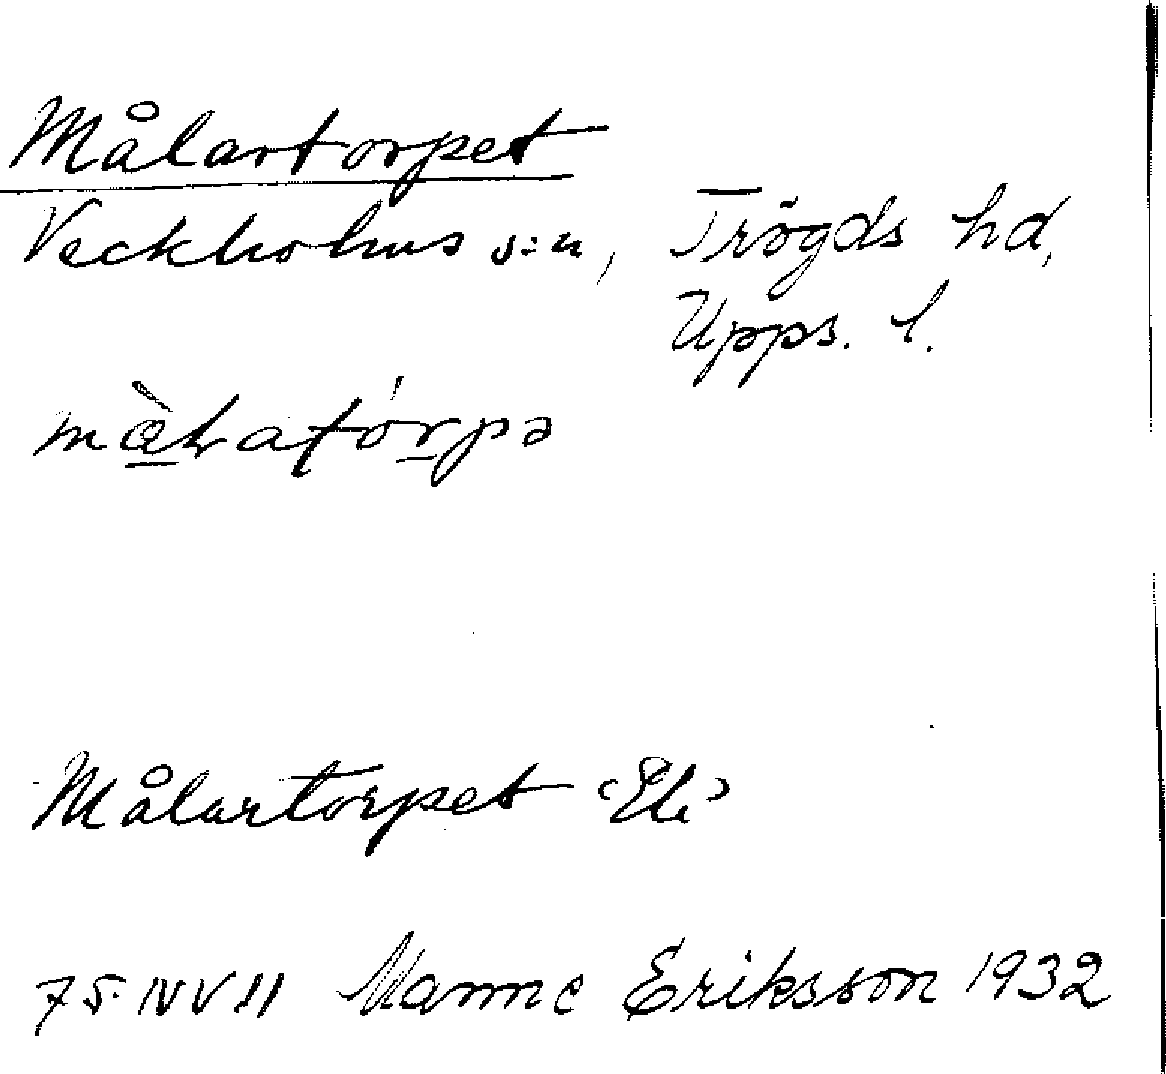 Målartorpet
Veckholms s:n, Trögds hd,
Upps. l.
Målartorpet
75. NV II Manne Eriksson 1932